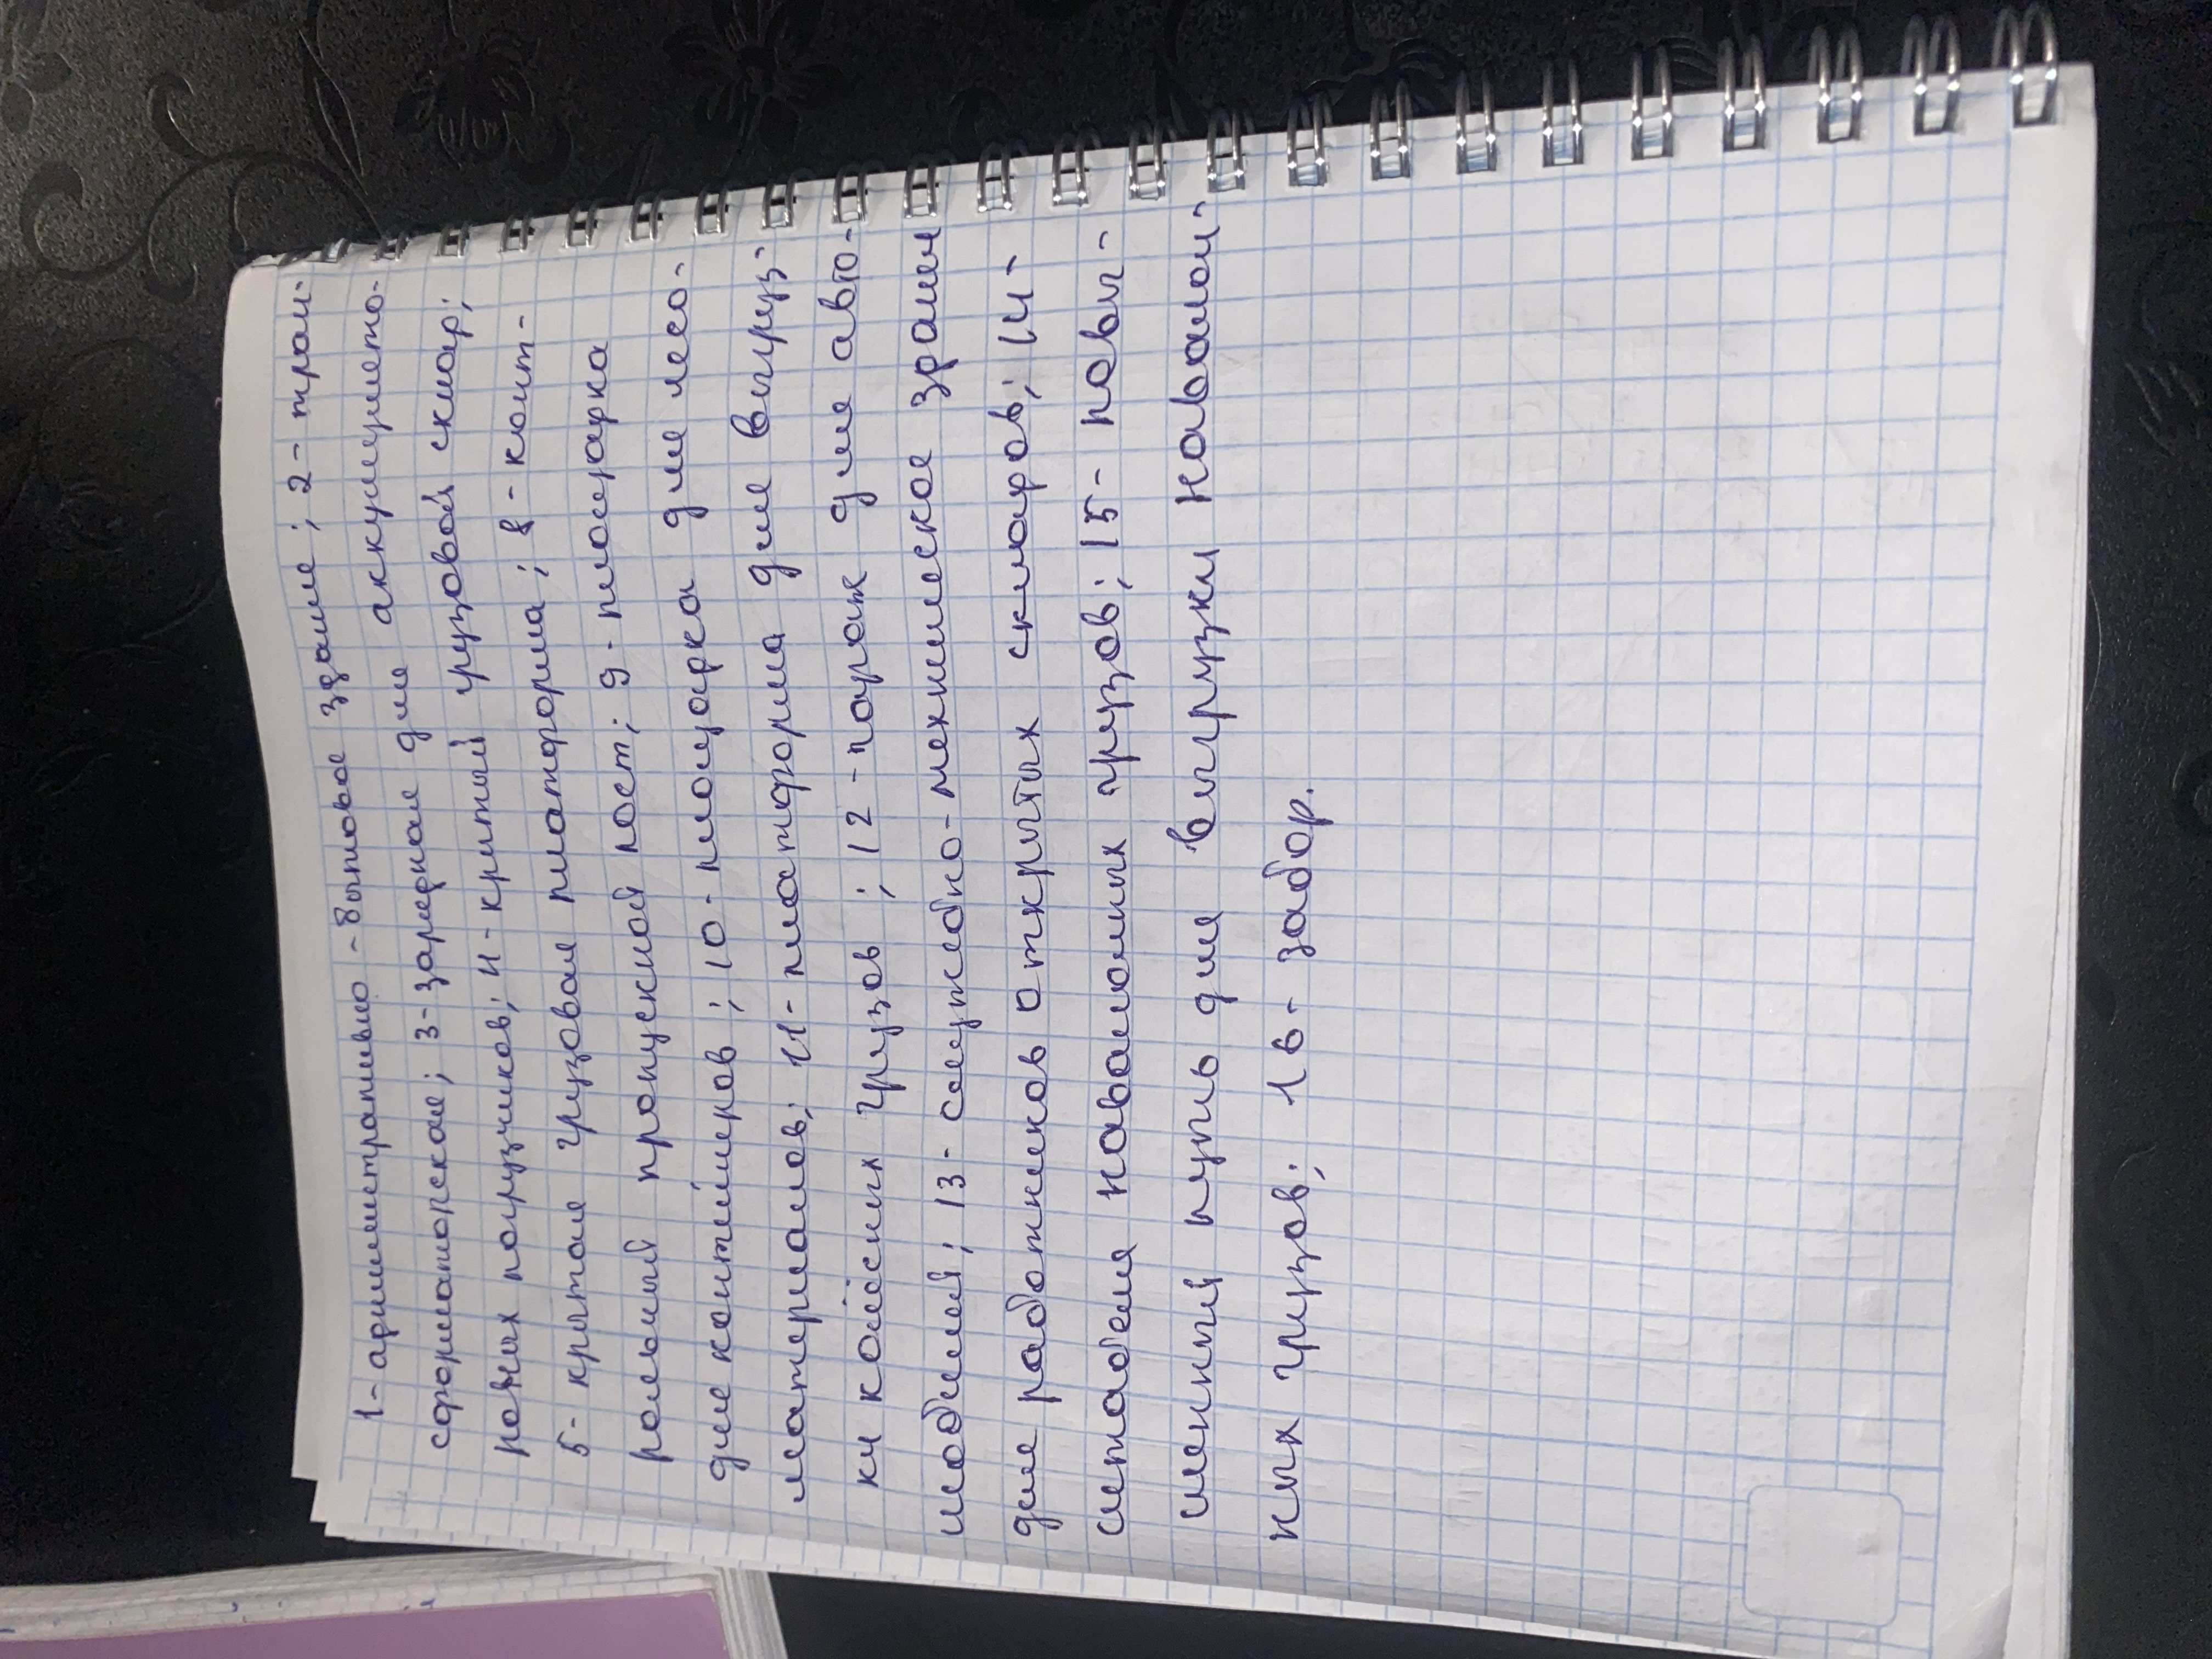 1- административно - бытовое здание; 2- тран-
сформаторская; 3- зарядная для аккумулято-
рных погрузчиков; 4- крытый грузовой склад;
5- крытая грузовая платформа; 8 - конт-
рольный пропускной пост; 9 - площадка
для контейнеров; 10- площадка для лесо-
материалов; 11- платформа для выгруз-
ки колёсных грузов; 12 - гараж для авто-
мобилей; 13- служебно-механическое здание
для работников открытых складов; 14-
штабеля навалочных грузов; 15- повы-
шенный путь для выгрузки навалоч-
ных грузов; 16- забор.